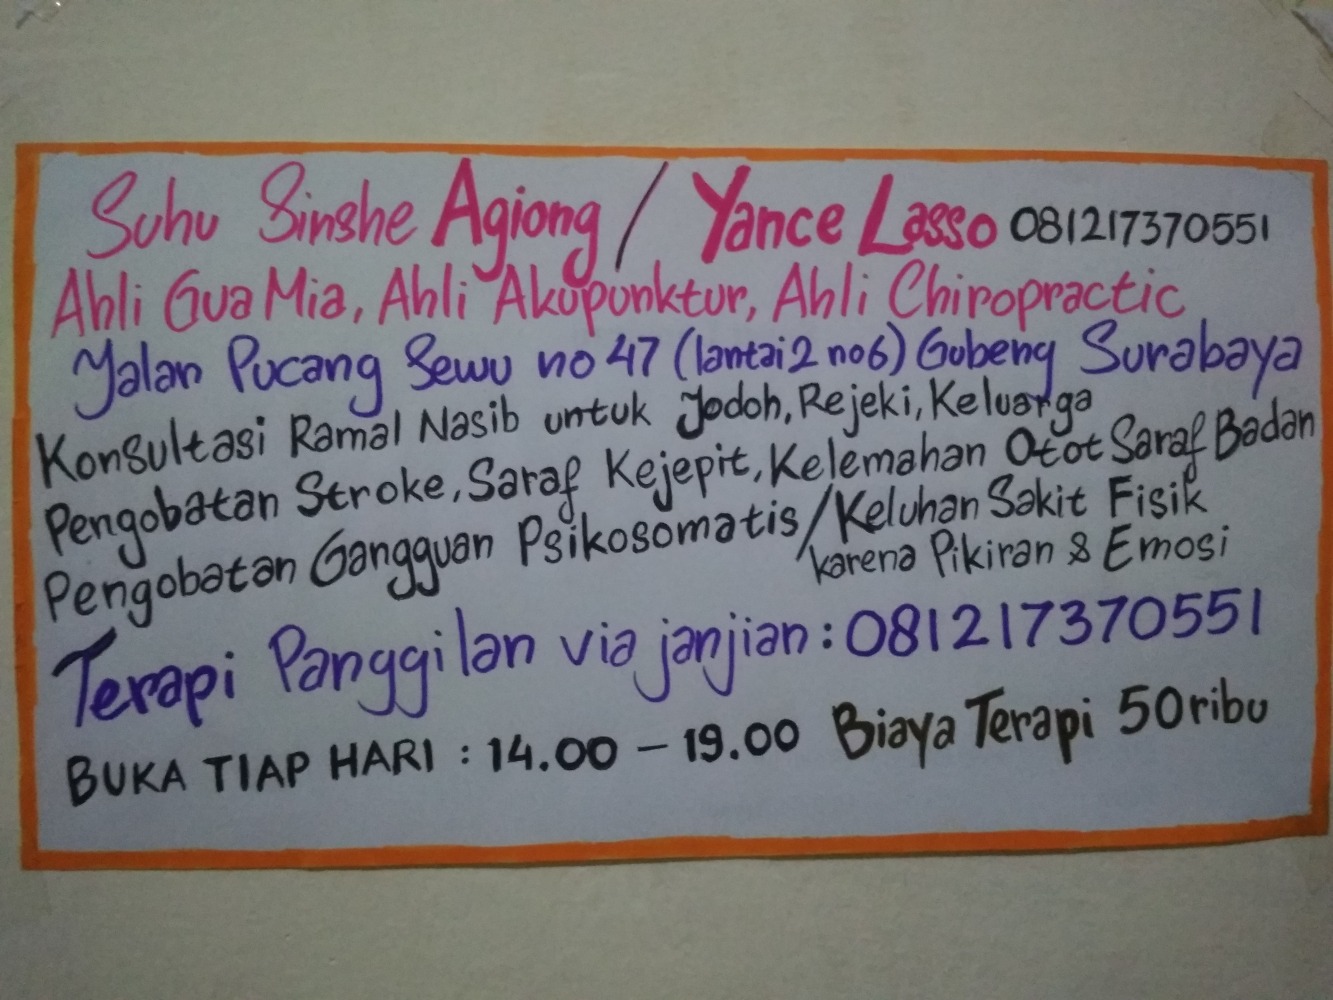 Suhu Sinshe Agiong / Yance Lasso 081217370551
Ahli Gua Mia, Ahli Akupunktur, Ahli Chiropractic
Jalan Pucang Sewu no 47 (lantai 2 no 6) Gubeng Surabaya
Konsultasi Ramal Nasib untuk Jodoh, Rejeki, Keluarga
Pengobatan Stroke, Saraf Kejepit, Kelemahan Otot Saraf Badan
Pengobatan Gangguan Psikosomatis / Keluhan Sakit Fisik
karena Pikiran & Emosi
Terapi Panggilan via janjian : 081217370551
BUKA TIAP HARI : 14.00 - 19.00 Biaya Terapi 50 ribu